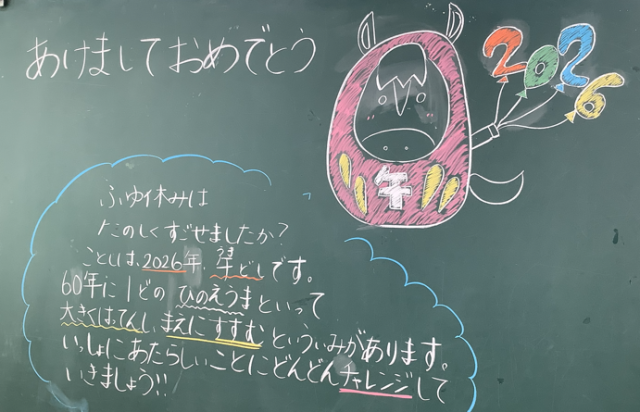 あけましておめでとう
2026
午
ふゆ休みは
たのしくすごせましたか?
ことしは、2026年、午どしです。
うま
60年に1どの ひのえうまといって
大きくはってんし、まえにすすむといういみがあります。
いっしょにあたらしいことにどんどんチャレンジして
いきましょう!!